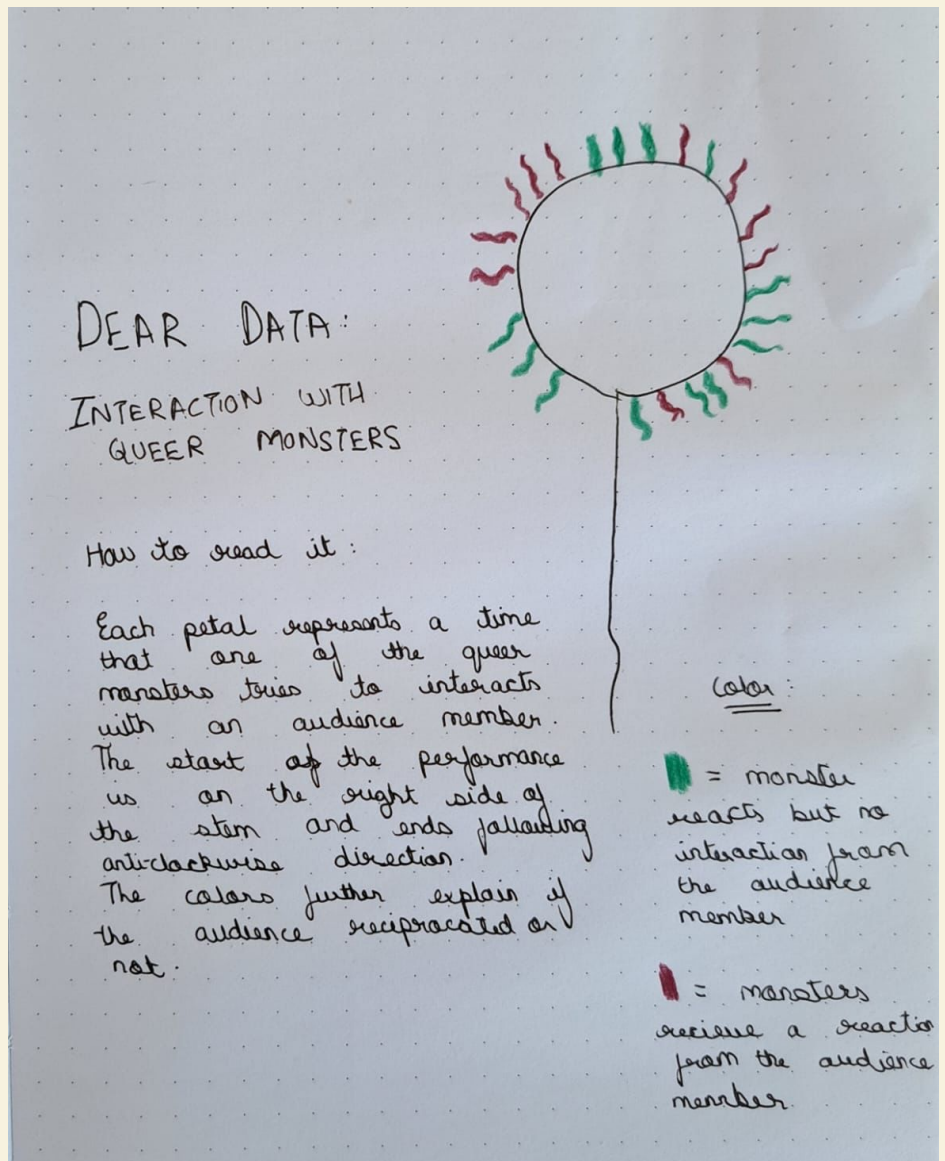 DEAR DATA:
INTERACTION WITH
QUEER MONSTERS
How to read it:
Each petal represents a time
that one of the queer
monsters tries to interacts
with an audience member.
The start of the performance
us on the right side of
the stem and ends following
anti-clockwise direction.
The colors further explain if
the audience reciprocated or
not.
Color:
= monster
reacts but no
interaction from
the audience
member
= monsters
recieve a reaction
from the audience
member.